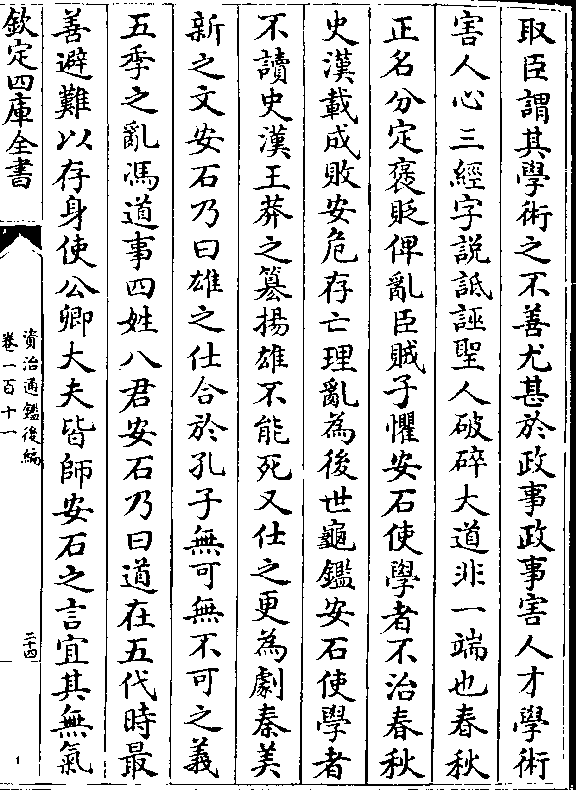 取臣謂其學術之不善尤甚於政事政事害人才學術
害人心三經字説詆誣聖人破碎大道非一端也春秋
正名分定褒貶俾亂臣賊子懼安石使學者不治春秋
史漢載成敗安危存亡理亂為後世龜鑑安石使學者
不讀史漢王莽之簒揚雄不能死又仕之更為劇秦美
新之文安石乃曰雄之仕合於孔子無可無不可之義
五季之亂馮道事四姓八君安石乃曰道在五代時最
善避難以存身使公卿大夫皆師安石之言宜其無氣
欽定四庫全書
資治通鑑後編
卷一百十一
二十四